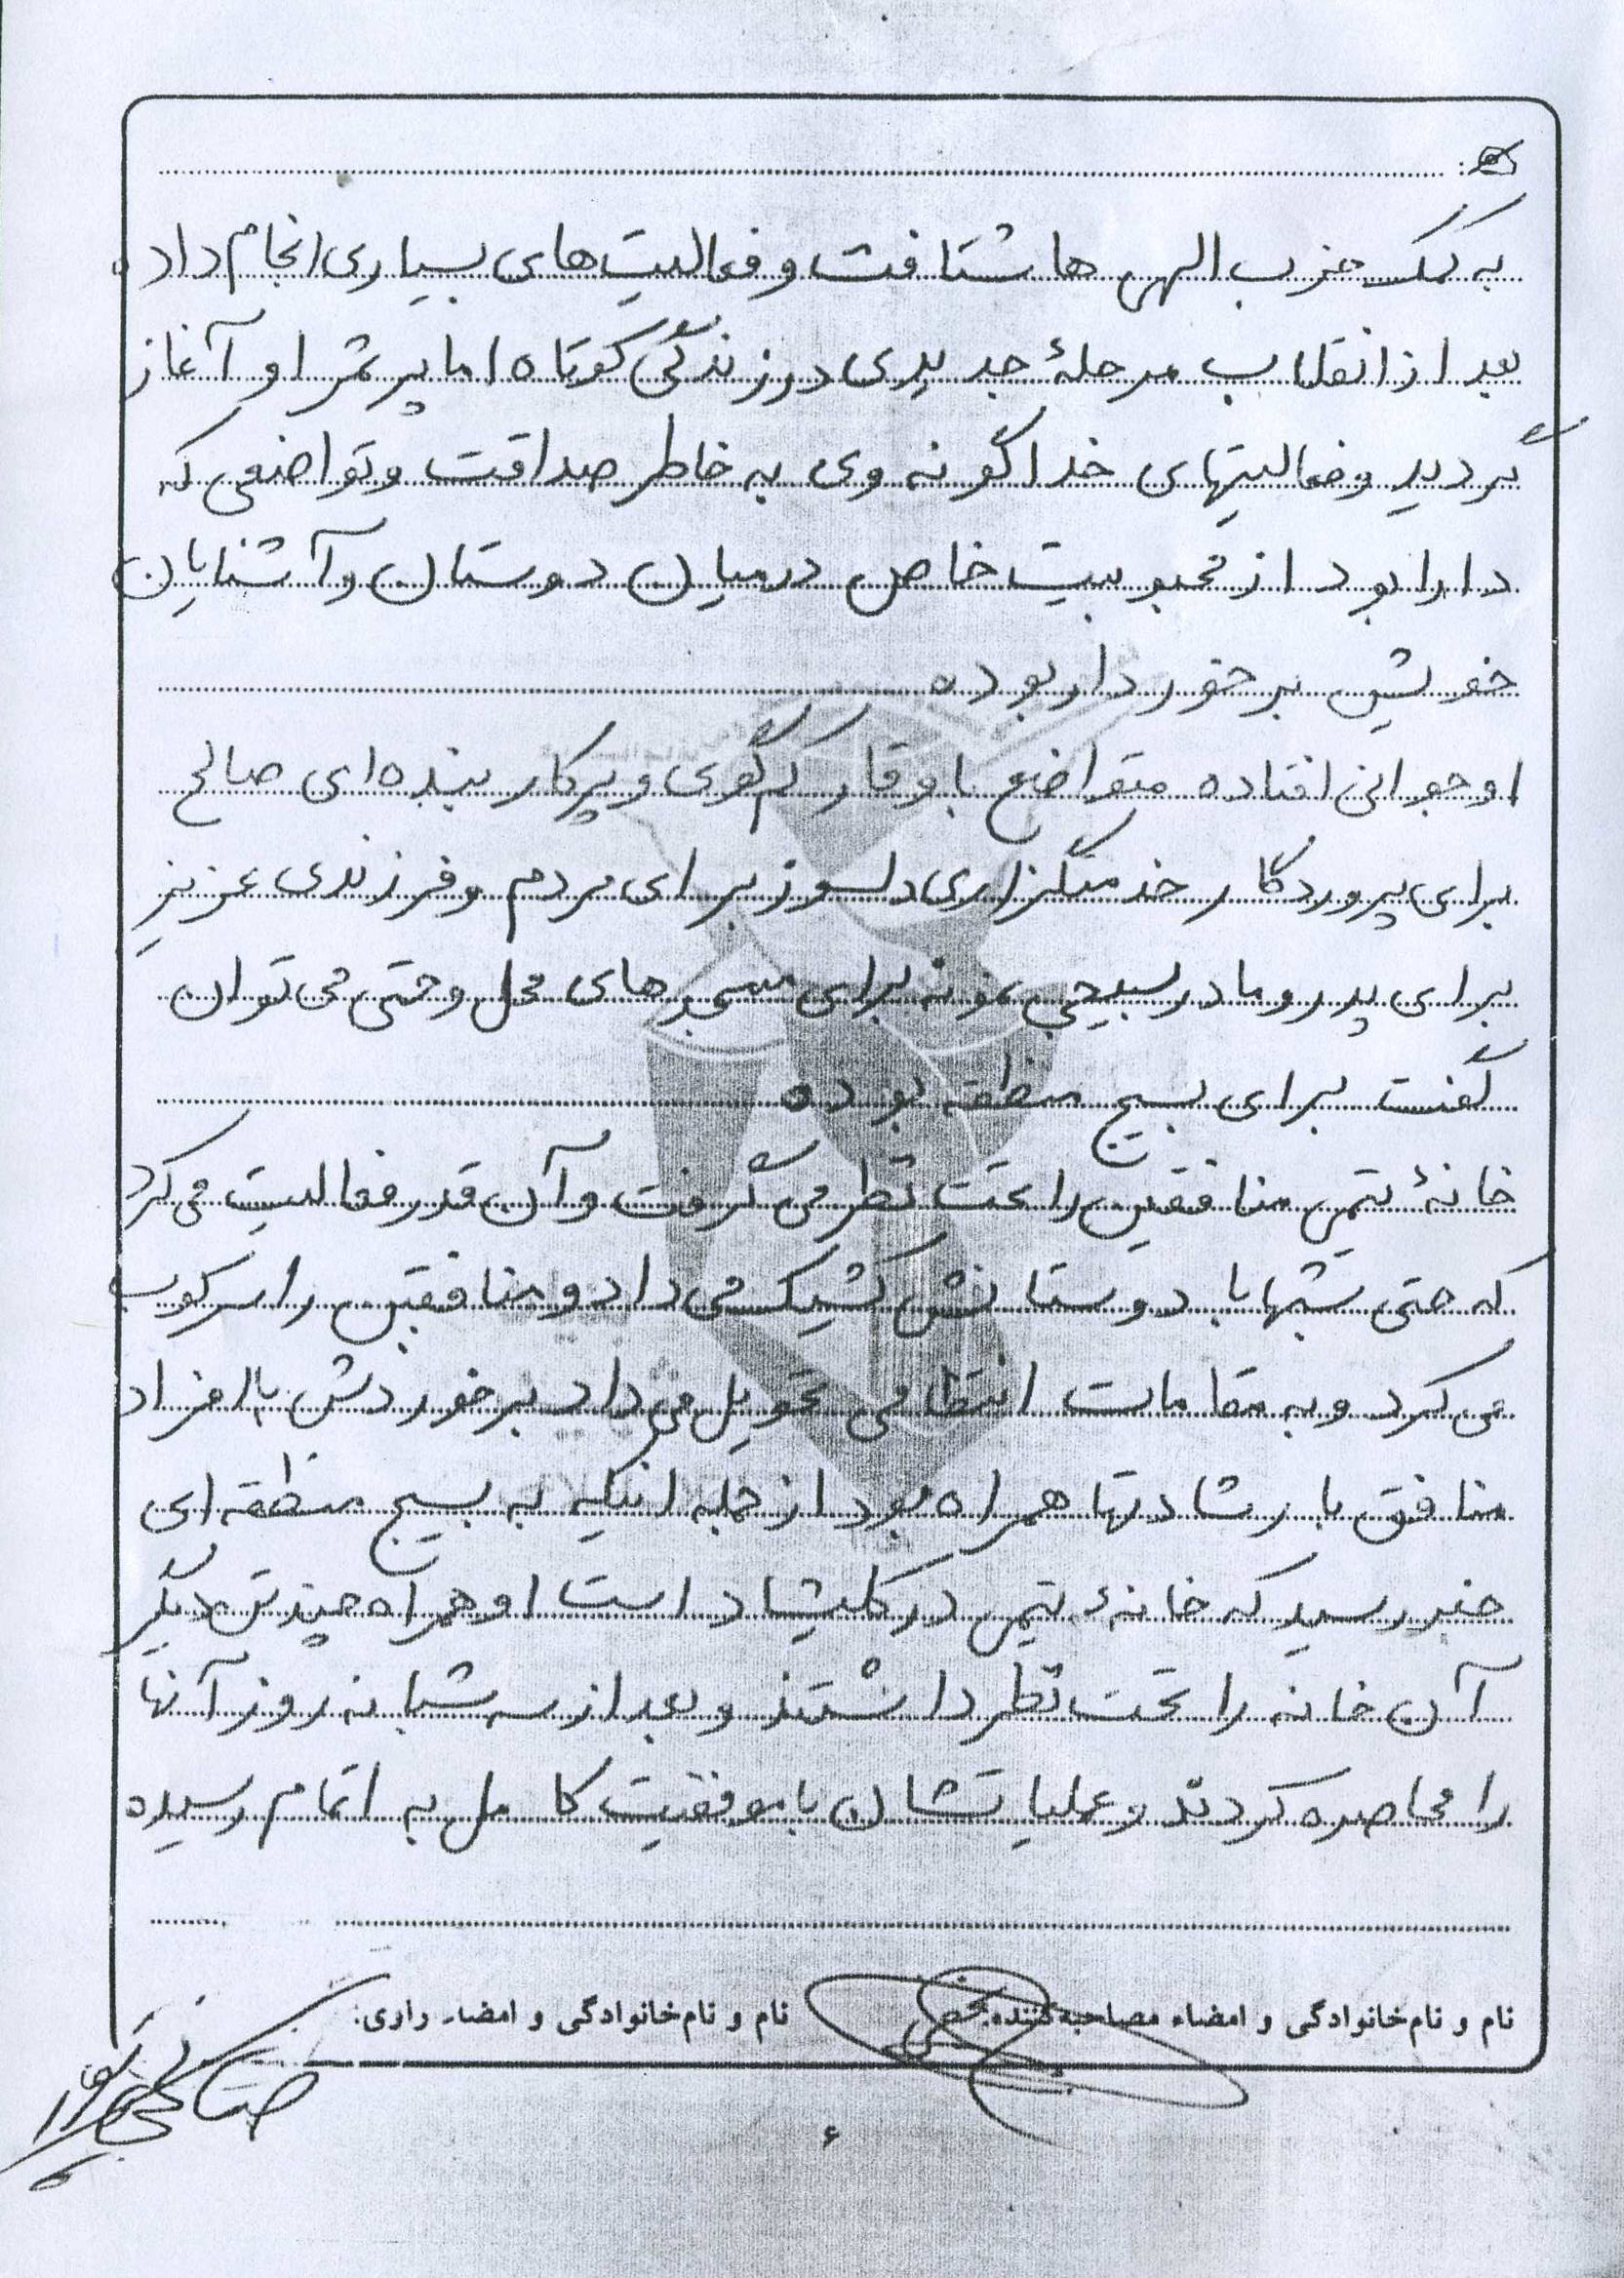 به کمک حزب الهی ها شتافت و فعالیت های بسیاری انجام داد.
بعد از انقلاب مرحلهٔ جدیدی در زندگی کوتاه اما پر ثمر او آغاز
گردید و فعالیتهای خداگونه وی به خاطر صداقت و تواضعی که
دارا بود از محبوبیت خاص در میان دوستان و آشنایان
خویش برخوردار بوده
او جوانی افتاده متواضع با وقار کم گوی و پرکار بنده ای صالح
برای پروردگار خدمتگزاری دلسوز برای مردم و فرزندی عزیز
برای پدر و مادر بسیجی نمونه برای مسجدهای محل و حتی می توان
گفت برای بسیج منطقه بوده
خانهٔ تیمی منافقین را تحت نظر می گرفت و آن قدر فعالیت می کرد
که حتی شبها با دوستانش کشیک می داد و منافقین را سرکوب
می کرد و به مقامات انتظامی تحویل می داد برخوردش با افراد
منافق با رشادتها همراه بود از جمله اینکه به بسیج منطقه ای
خبر رسید که خانهٔ تیمی در کلیشاد است او همراه چند تن دیگر
آن خانه را تحت نظر داشتند و بعد از سه شبانه روز آنها
را محاصره کردند و عملیاتشان با موفقیت کامل به اتمام رسیده
نام و نام خانوادگی و امضاء مصاحبه کننده: نام و نام خانوادگی و امضاء راوی:
۶